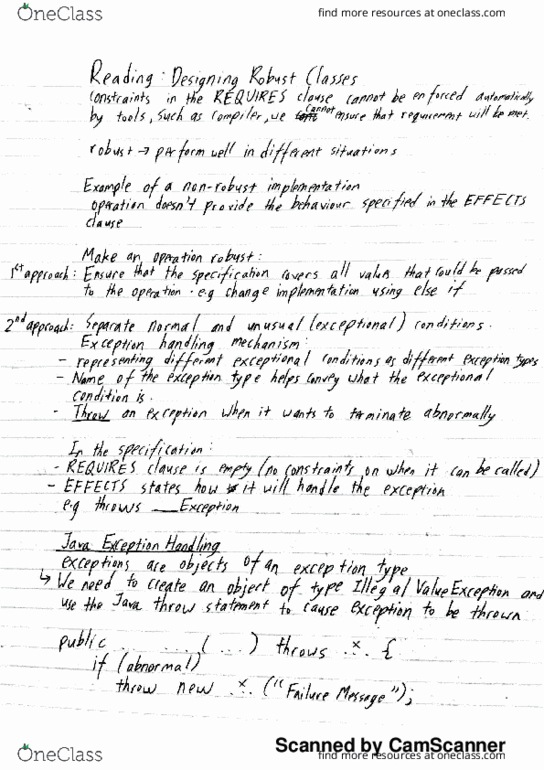 OneClass
find more resources at oneclass.com
Reading: Designing Robust Classes
constraints in the REQUIRES clause cannot be enforced automatically
by tools, such as compiler, we cannot ensure that requirement will be met.
robust → perform well in different situations
Example of a non-robust implementation
operation doesn't provide the behaviour specified in the EFFECTS
clause
Make an operation robust:
1st approach: Ensure that the specification covers all values that could be passed
to the operation. e.g change implementation using else if
2nd approach: Separate normal and unusual (exceptional) conditions.
Exception handling mechanism:
- representing different exceptional conditions as different exception types
- Name of the exception type helps convey what the exceptional
condition is.
- Throw an exception when it wants to terminate abnormally
In the specification:
- REQUIRES clause is empty (no constraints on when it can be called)
- EFFECTS states how it will handle the exception
e.g throws ___Exception
Java Exception Handling
exceptions are objects of an exception type
↳ We need to create an object of type IllegalValueException and
use the Java throw statement to cause exception to be thrown
public ... ... ( ... ) throws .x. {
if (abnormal)
throw new .x. ("Failure Message");
Scanned by CamScanner
OneClass
find more resources at oneclass.com